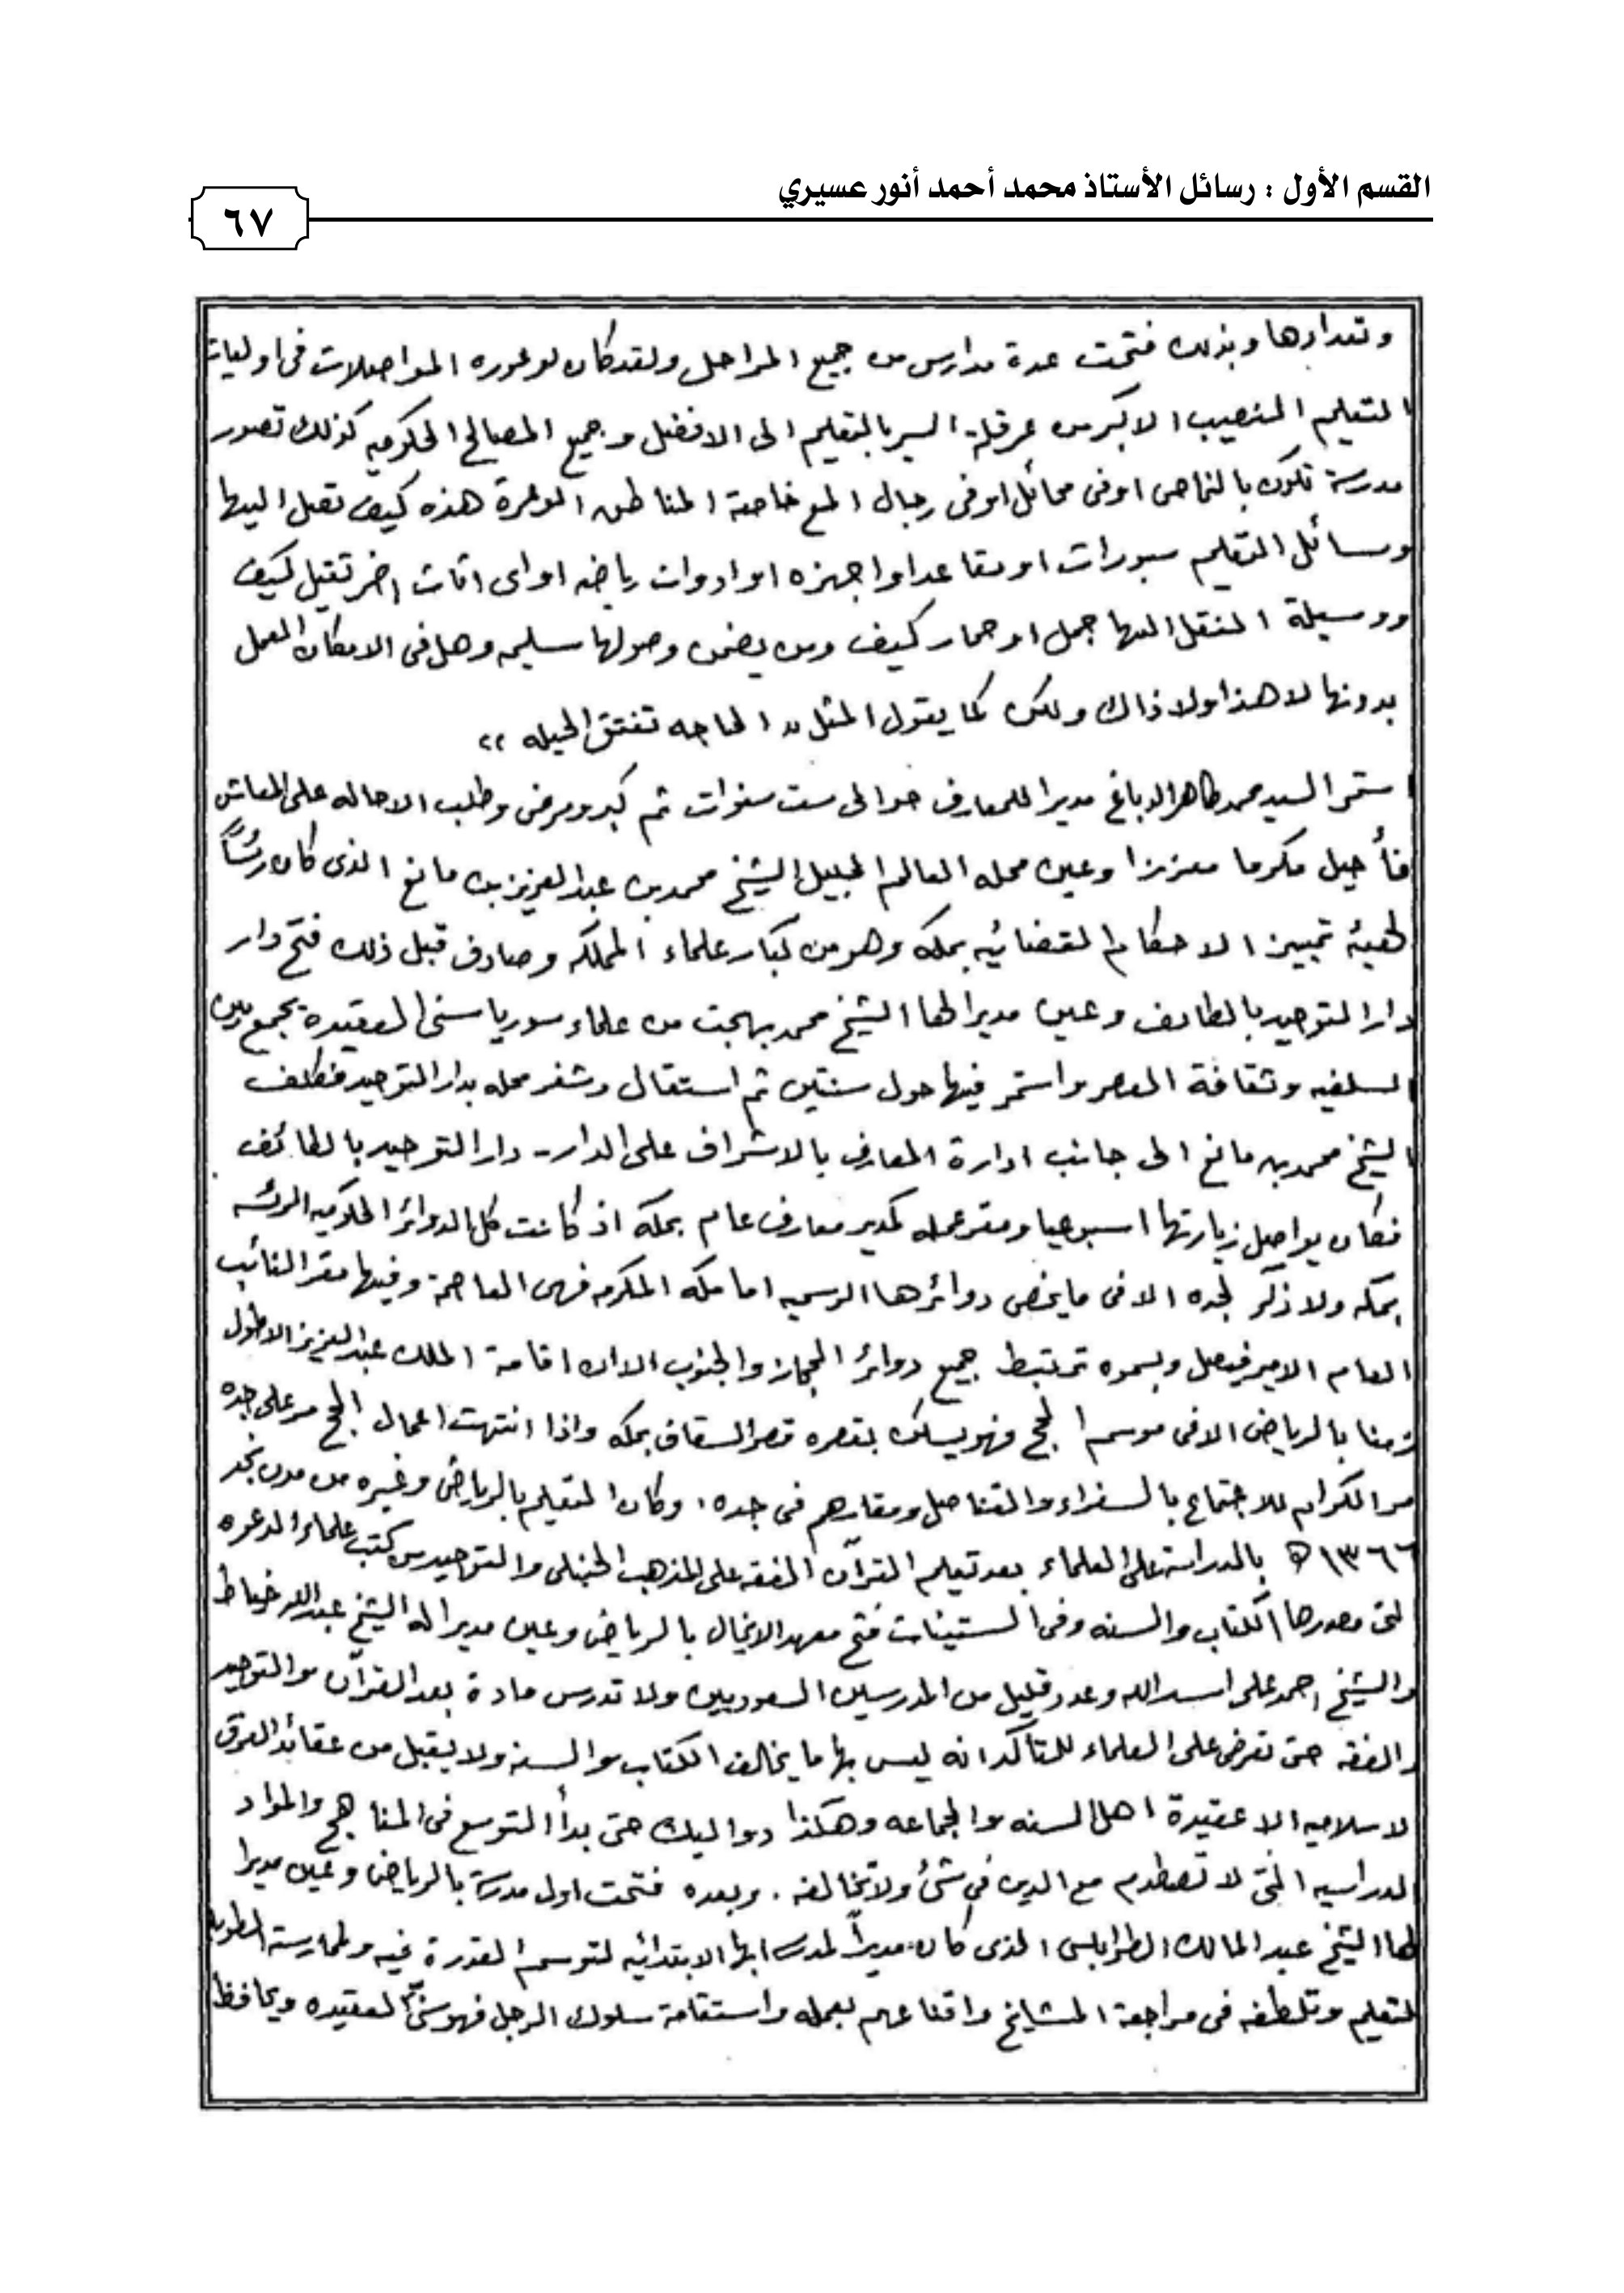 القسم الأول : رسائل الأستاذ محمد أحمد أنور عسيري
٦٧
وتعدادها وبذلك فتحت عدة مدارس من جميع المراحل ولقد كان لوعوره المواصلات فى اوليات
التعليم النصيب الاكبر من عرقلة السير بالتعليم الى الافضل وجميع المصالح الحكوميه كذلك تصور
مدرسة تكون بالنماص اوفى محائل اوفى رجال المع خاصة المناطق الوعرة هذه كيف تصل اليها
وسائل التعليم سبورات او مقاعد او اجهزه او ادوات رياضه او اى اثاث اخر ثقيل كيف
ووسيلة التنقل اليها جمل او حمار كيف ومن يضمن وصولها سليمه وهل فى الامكان العمل
بدونها لا هذا ولا ذاك ولكن كما يقول المثل « الحاجه تفتق الحيله »
استمر السيد محمد طاهر الدباغ مديرا للمعارف حوالى ست سنوات ثم كبر ومرض وطلب الاحاله على المعاش
فأحيل مكرما معززا وعين محله العالم الجليل الشيخ محمد بن عبد العزيز بن مانع الذى كان رئيساً
لهيئه تمييز الاحكام القضائيه بمكه وهو من كبار علماء المملكه وصادف قبل ذلك فتح دار
دار التوحيد بالطائف وعين مديرا لها الشيخ محمد بهجت من علماء سوريا سنى العقيدة يجمع بين
السلفيه وثقافة العصر واستمر فيها حول سنتين ثم استقال وشغر محله بدار التوحيد فكلف
الشيخ محمد بن مانع الى جانب ادارة المعارف بالاشراف على الدار - دار التوحيد بالطائف
فكان يواصل زيارتها اسبوعيا ومقر عمله كمدير معارف عام بمكه اذ كانت كل الدوائر الحكوميه الرئسه
بمكه ولا ذكر لجده الا فى ما يخص دوائرها الرسميه اما مكه المكرمه فهى العاصمة وفيها مقر النائب
العام الامير فيصل وبسموه ترتبط جميع دوائر الحجاز والجنوب الا ان اقامة الملك عبد العزيز الاطول
زمنا بالرياض الا فى موسم الحج فهو يسكن بقصره قصر السقاف بمكه واذا انتهت اعمال الحج مر على جده
مر الكرام للاجتماع بالسفراء والقناصل ومقارهم فى جده ، وكان التعليم بالرياض وغيره من مدن نجد
١٣٦٦ هـ بالدراسة على العلماء بعد تعليم القرآن الفقه على المذهب الحنبلى والتوحيد من كتب علماء الدعوه
التى مصدرها الكتاب والسنه وفى الستينات فتح معهد الانجال بالرياض وعين مديرا له الشيخ عبد الله خياط
والشيخ احمد على اسد الله وعدد قليل من المدرسين السعوديين ولا تدرس مادة بعد القرآن والتوحيد
والفقه حتى تعرض على العلماء للتأكد انه ليس بها ما يخالف الكتاب والسنه ولا يقبل من عقائد الفرق
الاسلاميه الا عقيدة اهل السنه والجماعه وهكذا دواليك حتى بدأ التوسع فى المناهج والمواد
الدراسيه التى لا تصطدم مع الدين في شئ ولا تخالفه . وبعده فتحت اول مدرسة بالرياض وعين مديرا
لها الشيخ عبد المالك الطرابلسى الذى كان مديراً لمدرسه ابها الابتدائيه لتوسم القدرة فيه ولممارسته الطويله
التعليم وتلطفه فى مراجعة المشايخ واقناعهم بعمله واستقامة سلوك الرجل فهو سنىّ العقيده ويحافظ